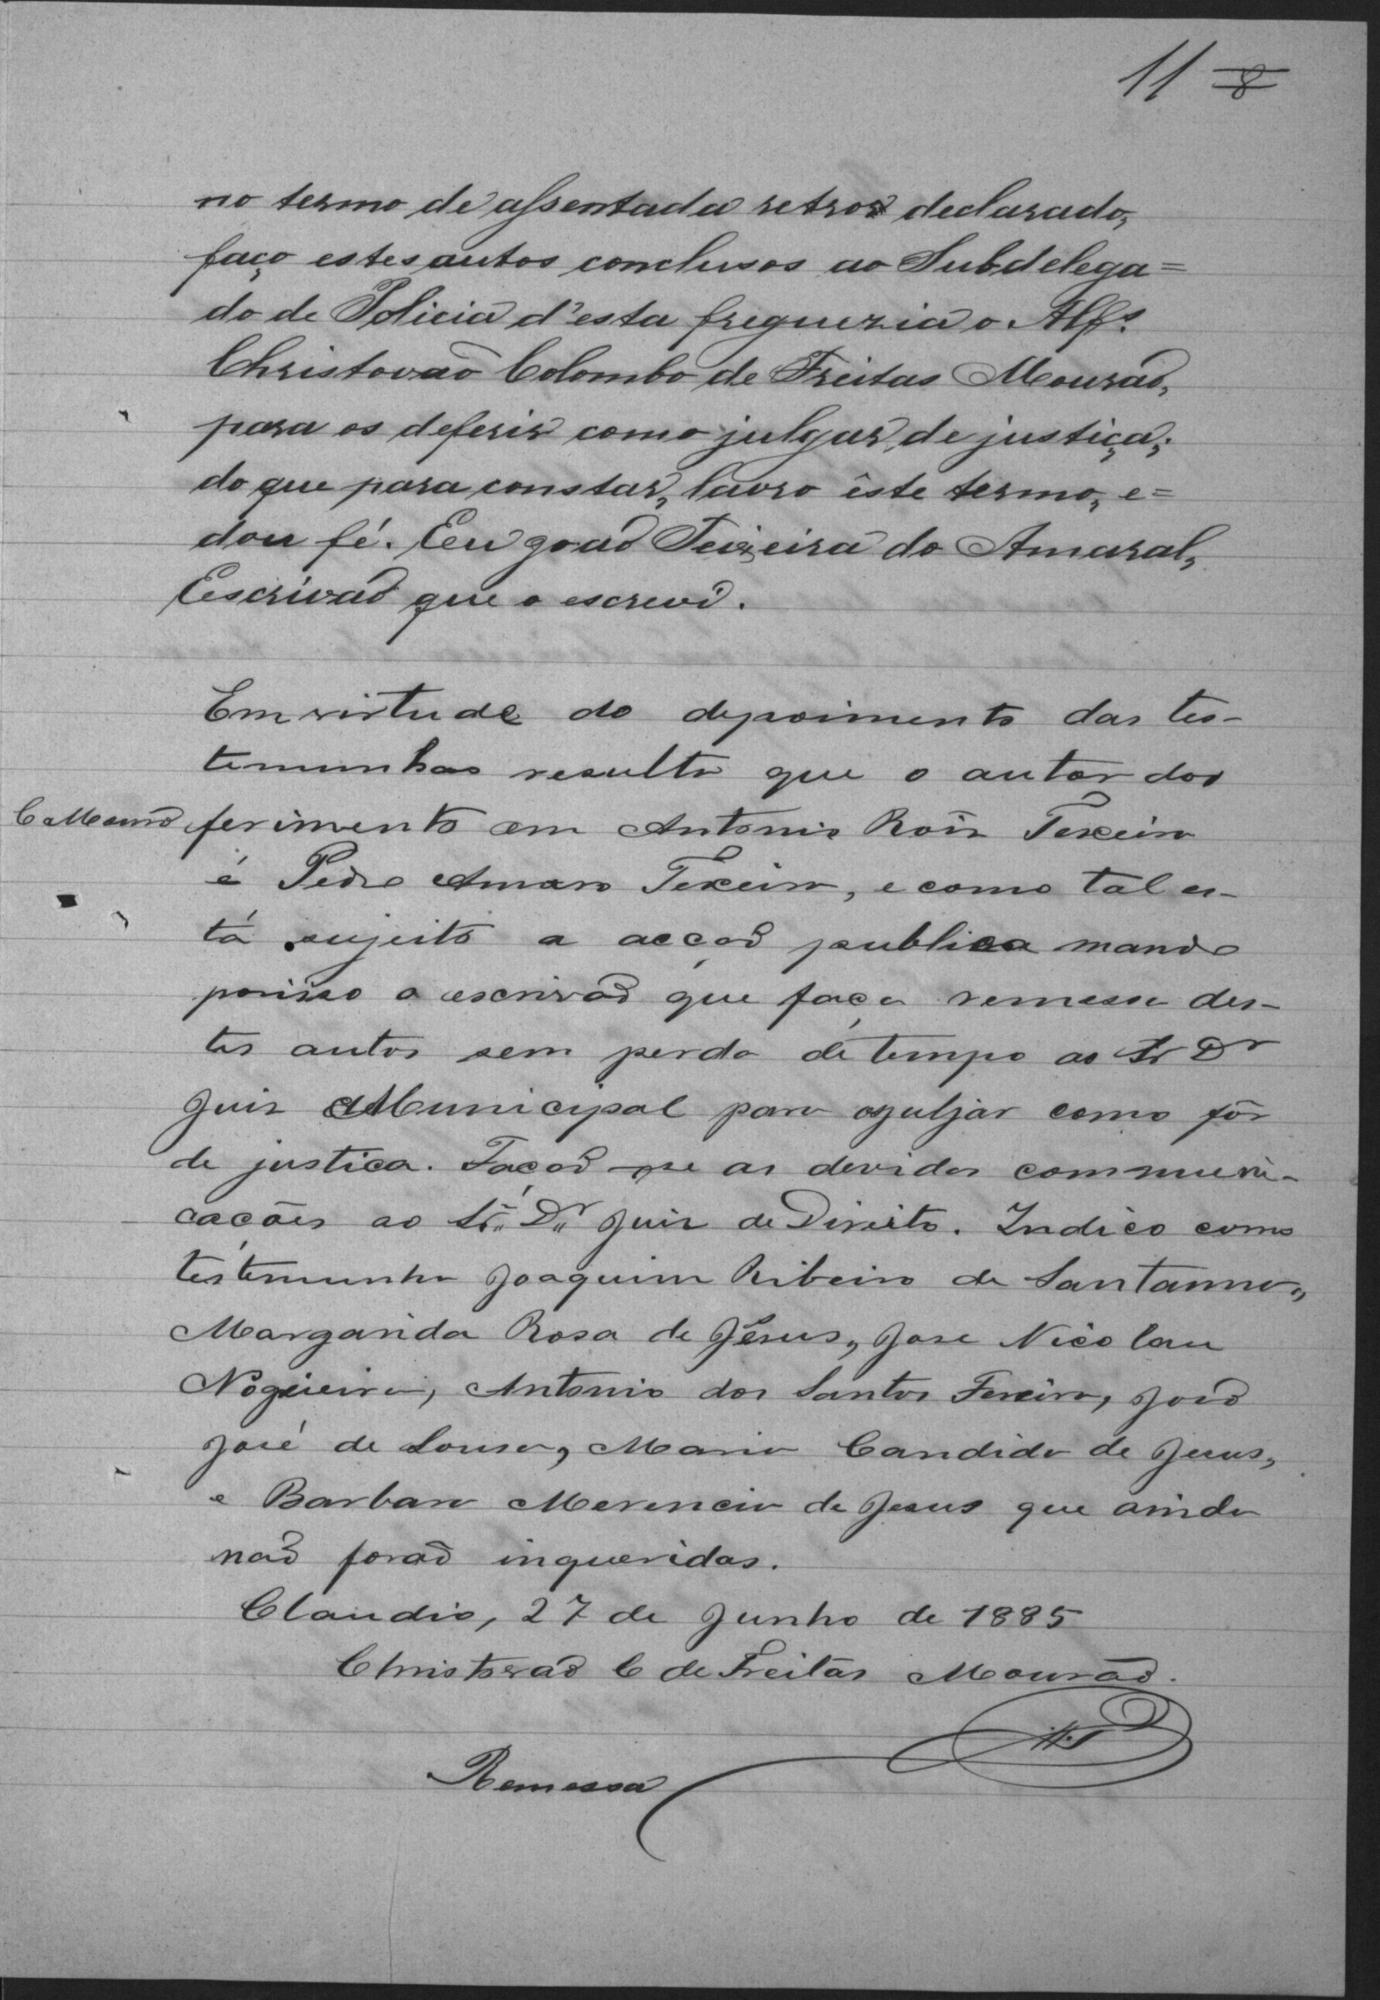 11 8
no termo de assentada retro declarado,
faço estes autos conclusos ao Subdelega=
do de Policia d'esta freguezia o Alfs.
Christovaõ Colombo de Freitas Mouraõ,
para os deferir como julgar de justiça;
do que para constar, lavro êste termo, e=
dou fé. Eu Joaõ Teixeira do Amaral,
Escrivaõ que o escrevi.
Em virtude do depoimento das tes-
temunhas resulta que o autor dos
C Mourão ferimento em Antonio Roiz Texeira
é Pedro Amaro Texeira, e como tal es-
tá sujeito a acçaõ publica mando
porisso o escrivaõ que faça remessa des-
tes autos sem perda de tempo ao Sr Dr
Juis Municipal para os juljar como fôr
de justica. Façaõ-se as devidas communi-
cações ao Sr. Dr. Juis de Direito. Indico como
testemunha Joaquim Ribeiro de Santanna,
Margarida Rosa de Jesus, Jose Nicolau
Nogueira, Antonio dos Santos Fereira, Joaõ
José de Sousa, Maria Candida de Jesus,
e Barbara Merencia de Jesus que ainda
naõ foraõ inqueridas.
Claudio, 27 de Junho de 1885
Christovaõ C de Freitas Mouraõ.
Remessa